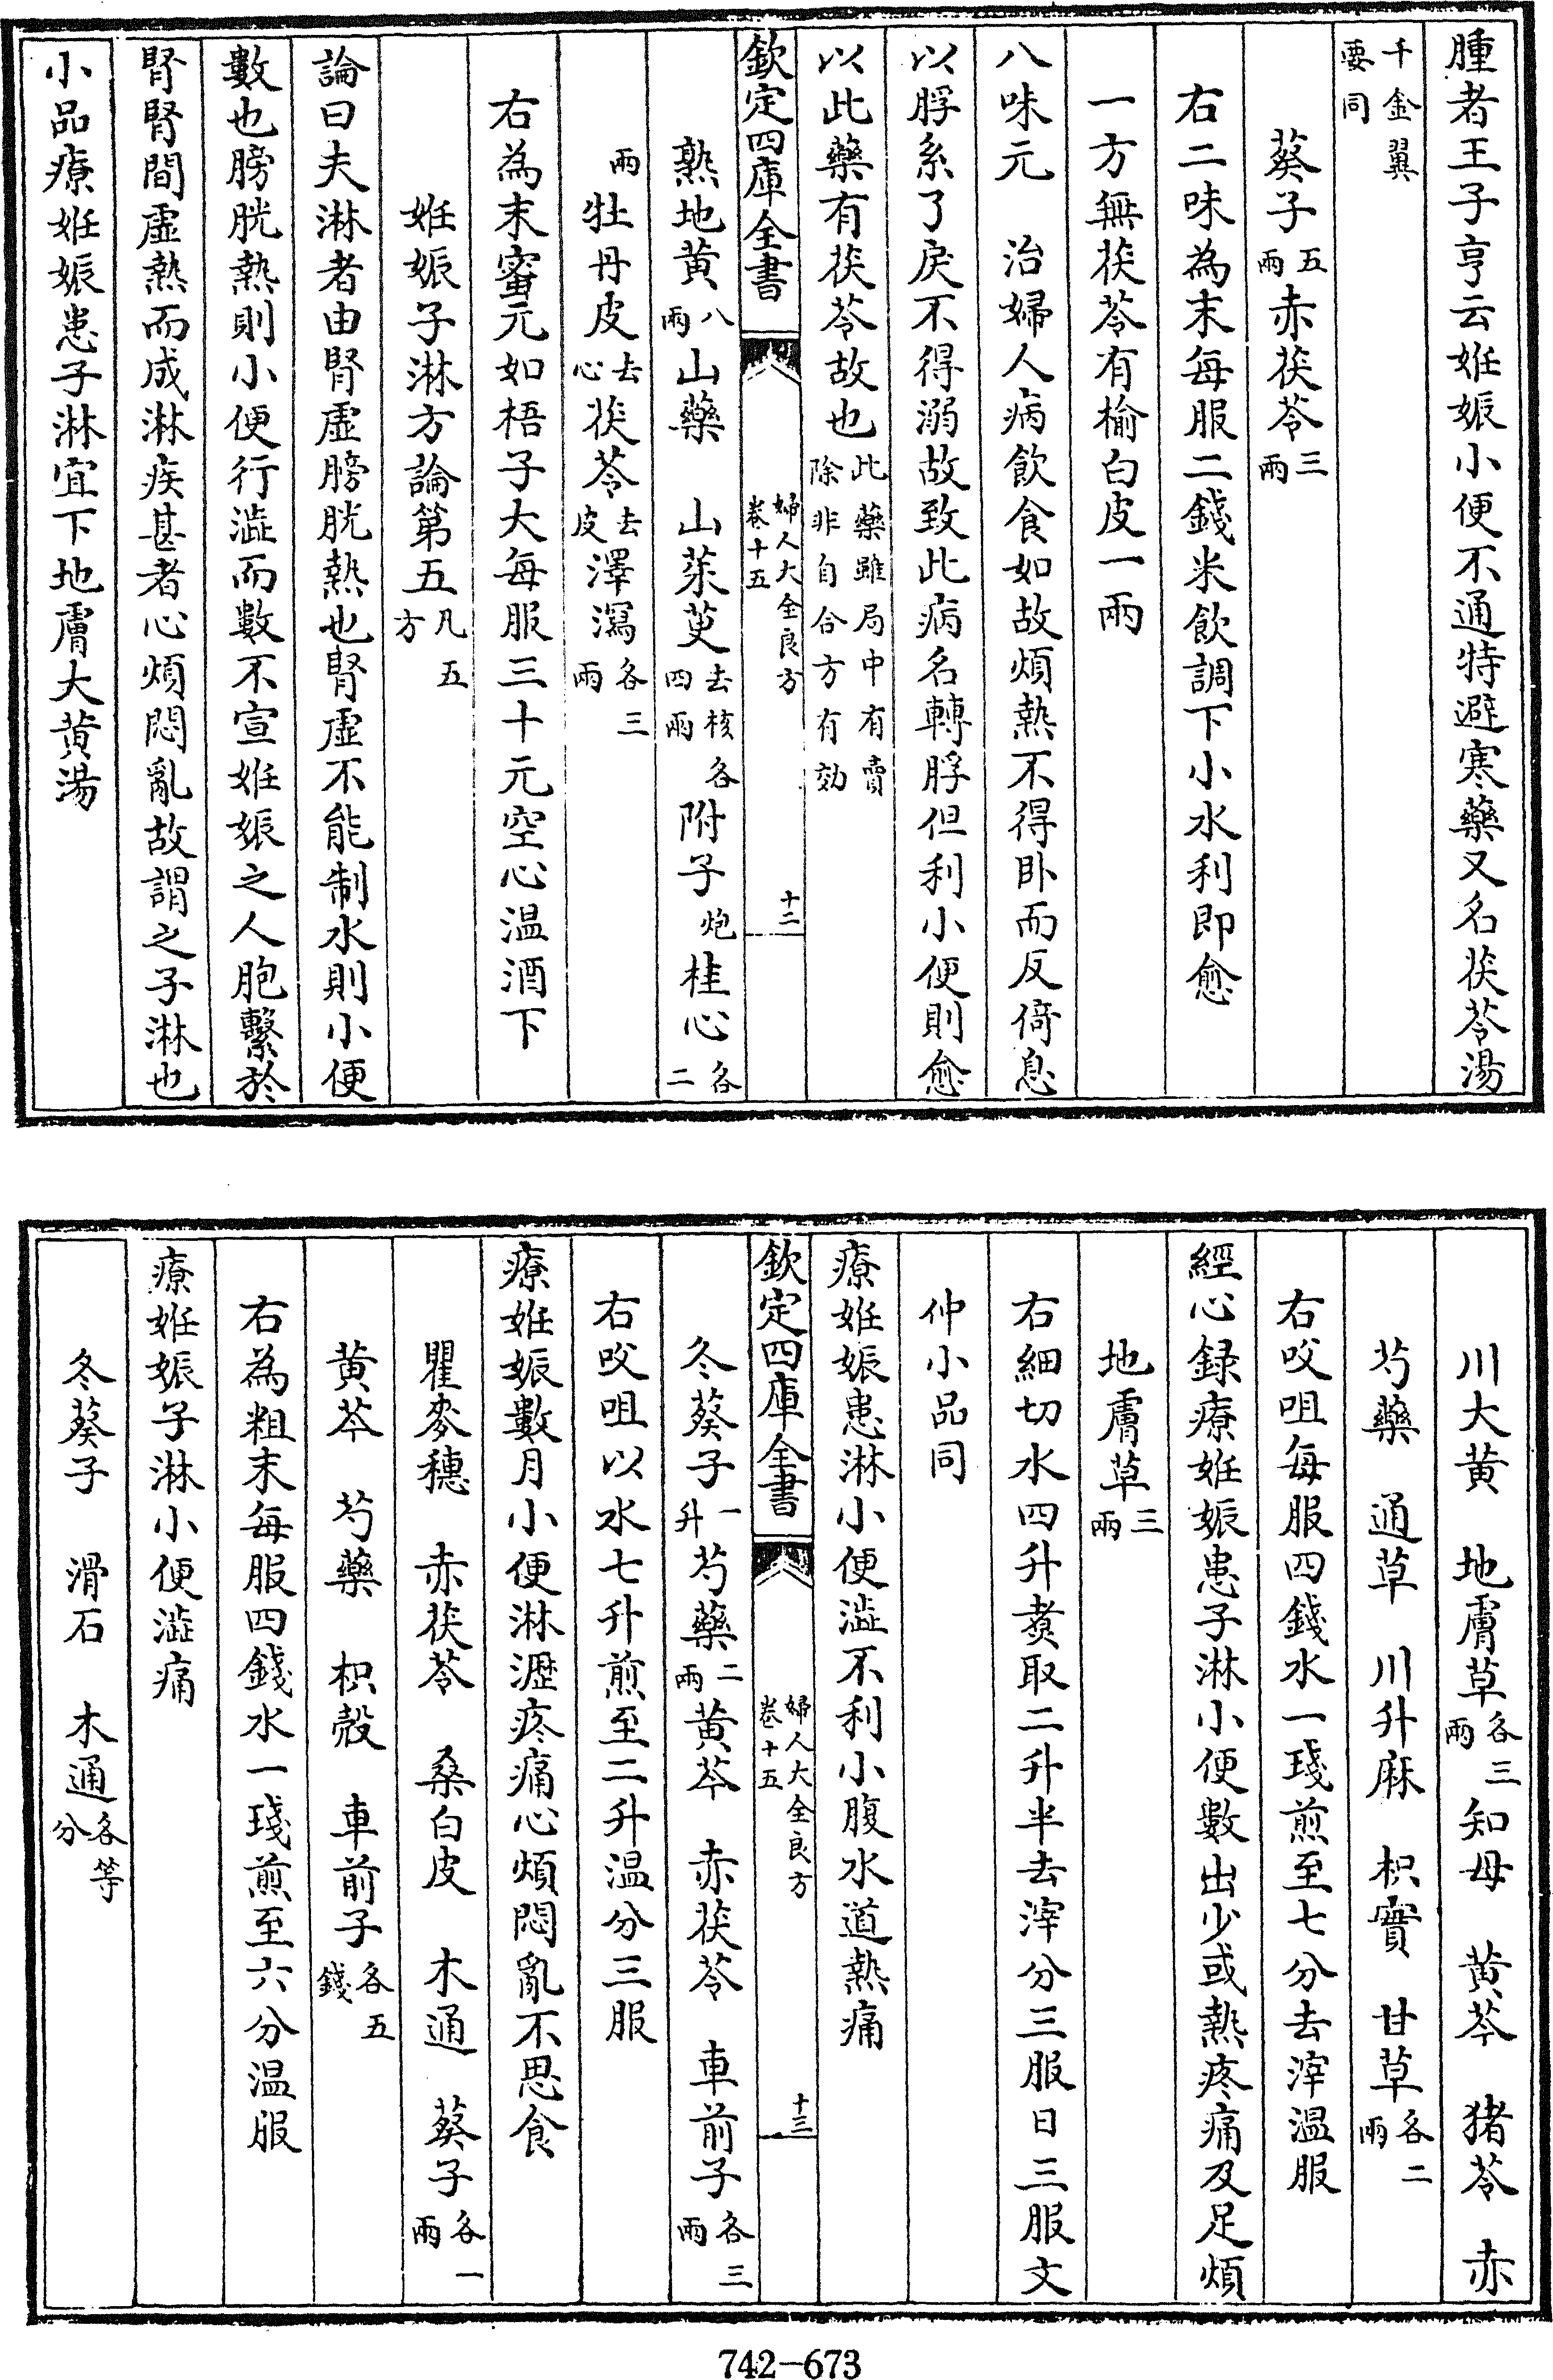 腫者王子亨云姙娠小便不通特避寒藥又名茯苓湯
千金翼要同
葵子五兩赤茯苓三兩
右二味為末每服二錢米飲調下小水利即愈
一方無茯苓有榆白皮一兩
八味元　治婦人病飲食如故煩熱不得卧而反倚息
以脬系了戾不得溺故致此病名轉脬但利小便則愈
以此藥有茯苓故也此藥雖局中有賣除非自合方有効
欽定四庫全書　婦人大全良方卷十五　十二
熟地黄八兩山藥　山茱萸去核各四兩附子炮桂心各二
兩牡丹皮去心茯苓去皮澤瀉各三兩
右為末蜜元如梧子大每服三十元空心温酒下
姙娠子淋方論第五凡五方
論曰夫淋者由腎虚膀胱熱也腎虚不能制水則小便
數也膀胱熱則小便行澁而數不宣姙娠之人胞繫於
腎腎間虚熱而成淋疾甚者心煩悶亂故謂之子淋也
小品療姙娠患子淋宜下地膚大黄湯
川大黄　地膚草各三兩知母　黄芩　猪苓　赤
芍藥　通草　川升麻　枳實　甘草各二兩
右㕮咀每服四錢水一琖煎至七分去滓温服
經心録療姙娠患子淋小便數出少或熱疼痛及足煩
地膚草三兩
右細切水四升煑取二升半去滓分三服日三服文
仲小品同
療姙娠患淋小便澁不利小腹水道熱痛
欽定四庫全書　婦人大全良方卷十五　十三
冬葵子一升芍藥二兩黄芩　赤茯苓　車前子各三兩
右㕮咀以水七升煎至二升温分三服
療姙娠數月小便淋瀝疼痛心煩悶亂不思食
瞿麥穗　赤茯苓　桑白皮　木通　葵子各一兩
黄芩　芍藥　枳殻　車前子各五錢
右為粗末每服四錢水一琖煎至六分温服
療姙娠子淋小便澁痛
冬葵子　滑石　木通各等分
742-673